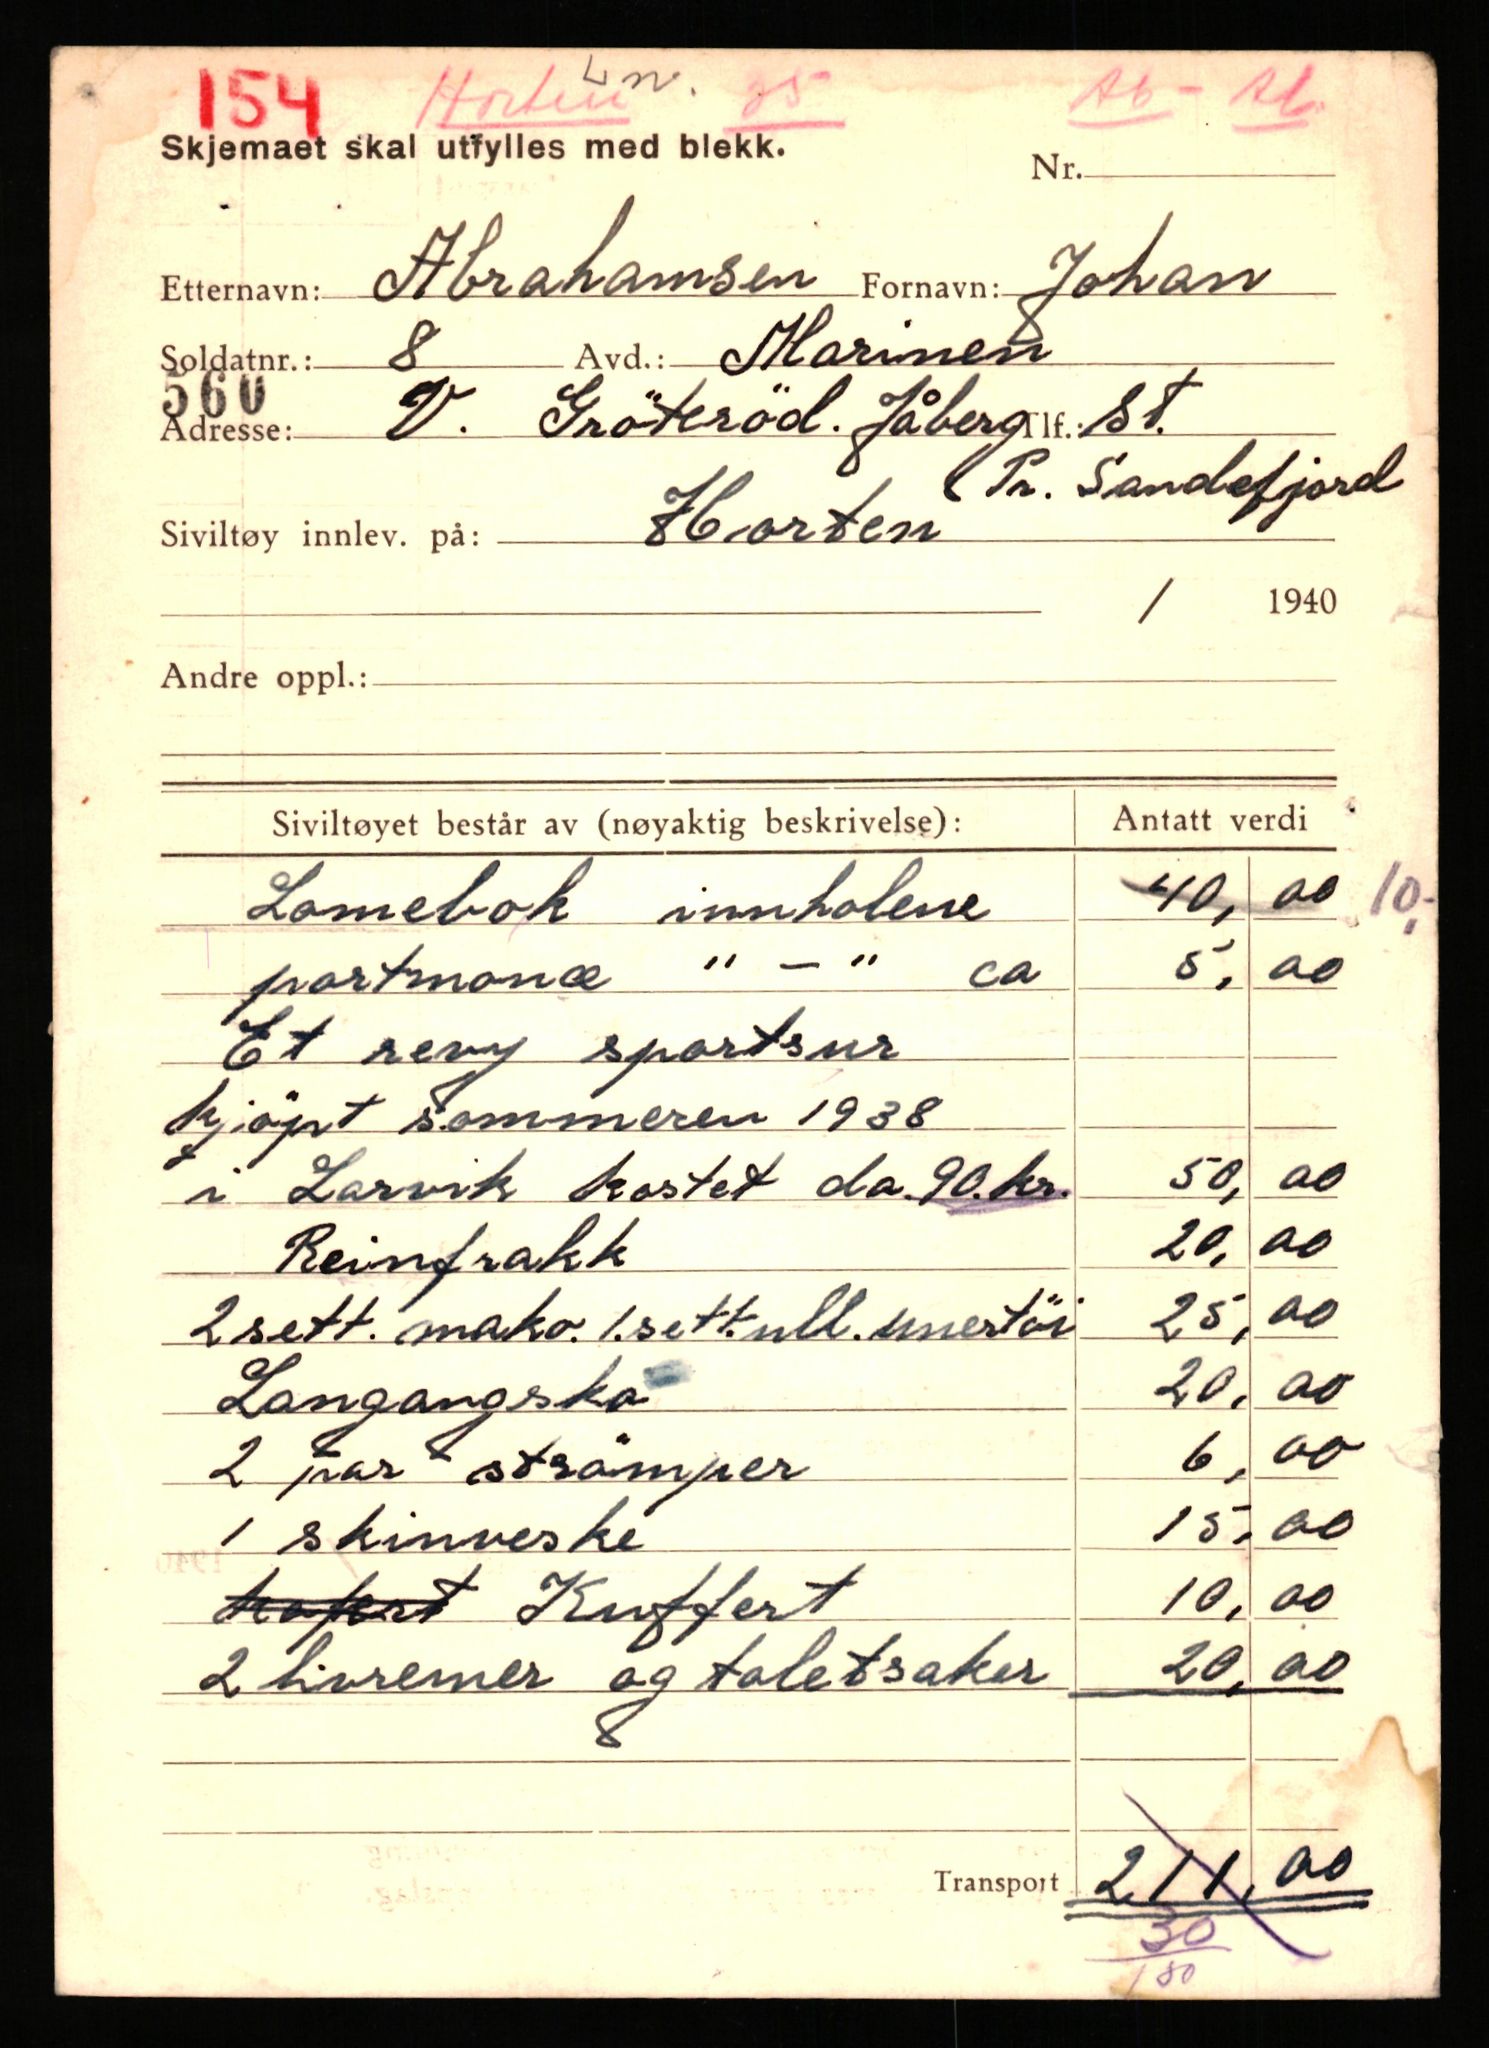 154 Horten L n. 25 Ab - Ab.
Skjemaet skal utfylles med blekk.
Nr.
Etternavn: Abrahamsen Fornavn: Johan
Soldatnr.: 8 Avd.: Marinen
560
Adresse: V. Gröteröd. Jåberg Tlf.: St.
Pr. Sandefjord
Siviltøy innlev. på: Horten
/ 1940
Andre oppl.:
Siviltøyet består av (nøyaktig beskrivelse): Antatt verdi
Lomebok innholene 40,00 10,-
portmonæ " - " ca 5,00
Et revy sportsur
kjöpt sommeren 1938
i Larvik kostet da 90. kr. 50,00
Reinfrakk 20,00
2 sett. mako. 1. sett. ull. unertöi 25,00
Langangsko 20,00
2 par strömper 6,00
1 skinveske 15,00
kofert Kuffert 10,00
2 livremer og toletsaker 20,00
Transport 211,00
30
180